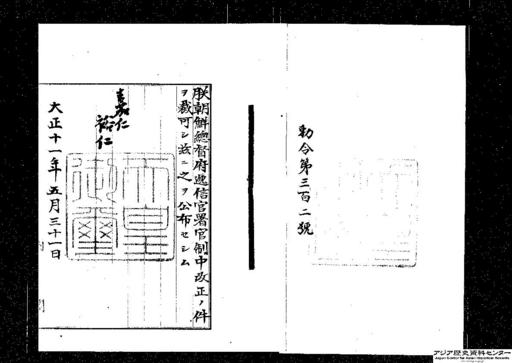 朕朝鮮總督府遞信官署官制中改正ノ件
ヲ裁可シ茲ニ之ヲ公布セシム
嘉仁
裕仁
天皇御璽
大正十一年五月三十一日
勅令第三百二號
アジア歴史資料センター
Japan Center for Asian Historical Records